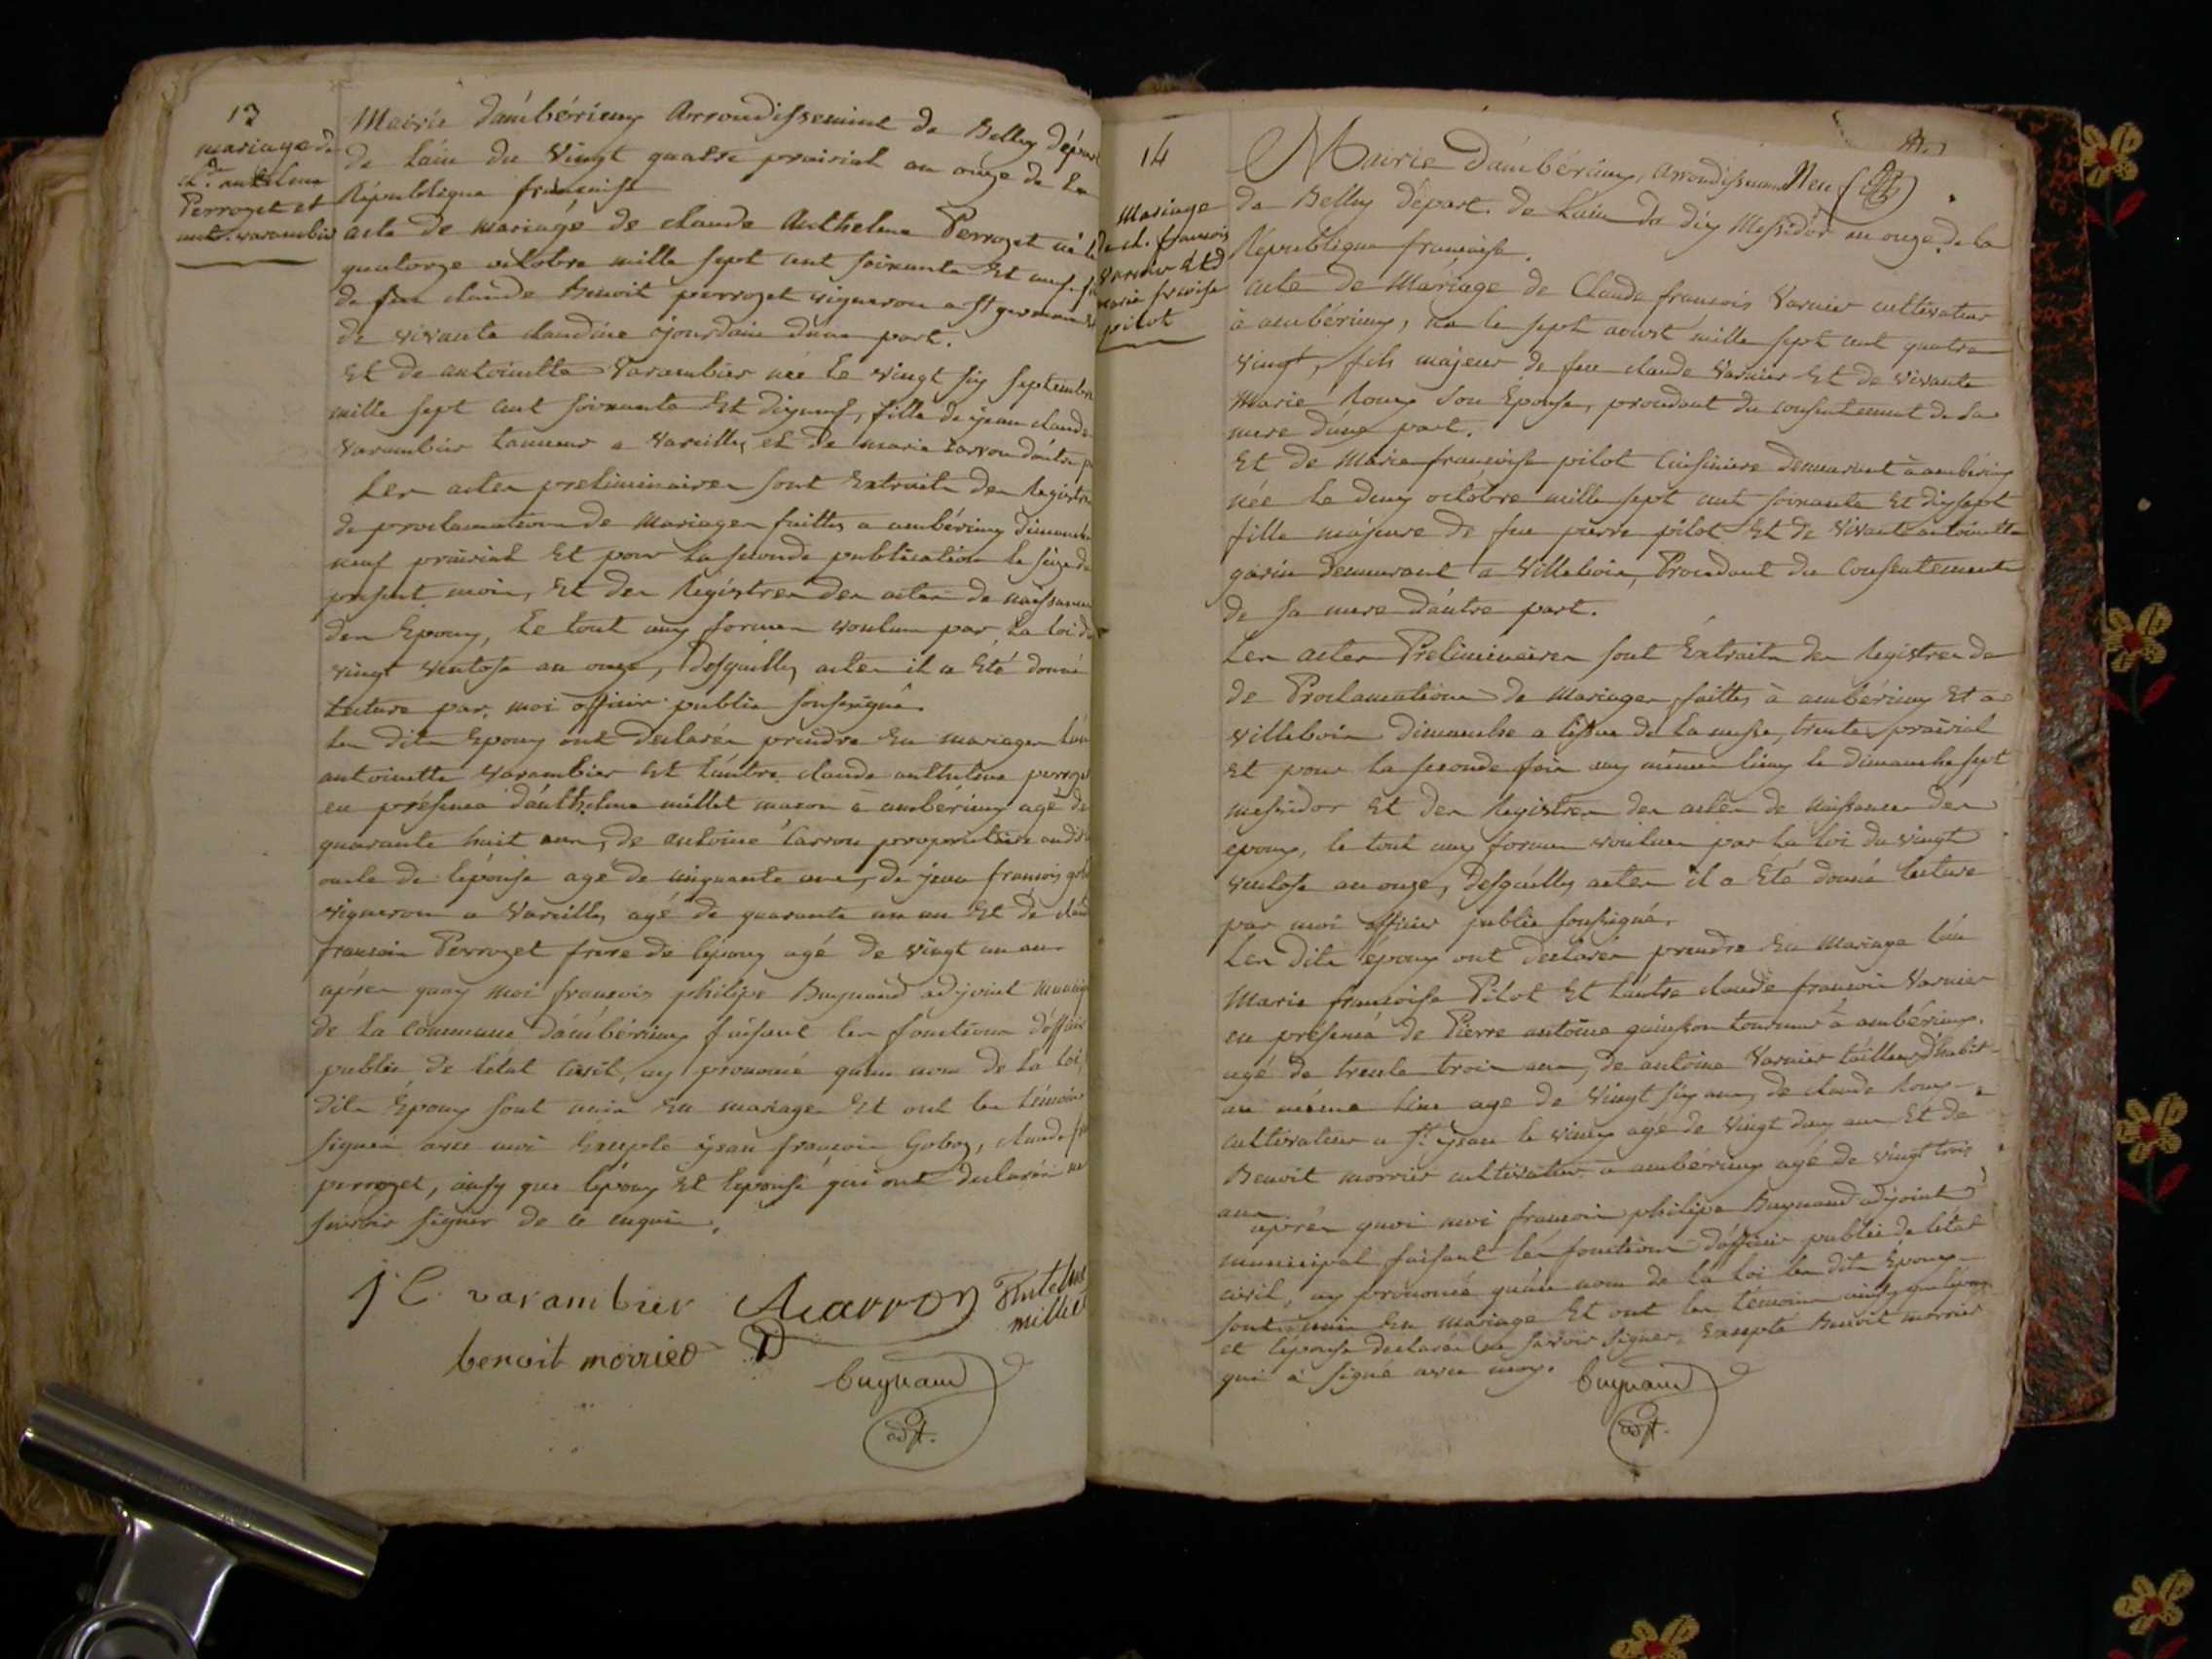 13
mariage de
cl.de anthelme
Perrozet et
ant. varambier
Mairie d'ambérieux Arrondissement de Belley dépar
de Lain du Vingt quatre prairial an onze de la
République francaise
acte de mariage de claude Anthelme Perrozet né le
quatorze octobre mille sept cent soixante et neuf
de feu claude Benoit perrozet vigneron a St germain et
de vivante claudine Jourdain d'une part.
Et de antoinette Varambier née le vingt six septembre
mille sept cent soixante et dixneuf, fille de jean claude
Varambier tanneur a Vareilles et de marie carron d'autre p
Les actes preliminaires sont Extraits des Registres
de proclamations de Mariages faittes a ambérieux dimanche
neuf prairial Et pour la seconde publication le seize du
present mois, Et des Régistres des actes de naissance
des Epoux, Le tout aux formes voulues par la loi du
vingt ventose an onze, desquelles actes il a Eté donné
lecture par moi officier public soussigné.
Les dits Epoux ont declarés prendre En mariage L'un
antoinette Varambier Et l'autre claude anthelme perrozet
en présence d'anthelme millet macon à ambérieux agé de
quarante huit ans, de antoine carron proprietaire audit
oncle de l'épouse agé de cinquante ans, de jean francois gob
vigneron a Vareilles agé de quarante un an Et de claude
francois Perrozet frere de l'époux agé de vingt un an
après quoy moi francois philipe Bugnaud adjoint municip
de la commune d'ambérieux faisant les fonctions d'officier
public de l'état civil, ay prononcé qu'au nom de la loi,
dits Epoux sont unis En mariage Et ont les témoins
signés avec moi Excepté jean francois Goboz, claude fr
perrozet, ainsy que l'époux Et l'épouse qui ont declarés ne
savoir signer de ce enquis.
J C varambier A carron Antelme
millet
benoit morrier
bugnaud
adjt.
14
Mariage
de cl. francois
Varnier Et d
marie francoise
pilot
Mairie d'ambérieux, arrondissement
de Belley départ. de Lain du dix Messidor an onze de la
République francaise.
acte de Mariage de Claude francois Varnier cultivateur
à ambérieux, né le sept aoust mille sept cent quatre
vingt, fils majeur de feu claude Varnier Et de vivante
Marie Roux son Epouse, procedant du consentement de sa
mere d'une part.
Et de Marie francoise pilot cuisiniere demeurant à ambérieux
née le deux octobre mille sept cent soixante Et dixsept
fille majeure de feu pierre pilot Et de vivante antoinette
garin demeurant a Villebois, Procedant du Consentement
de sa mere d'autre part.
Les actes Preliminaires sont Extraits des Registres de
de Proclamations de Mariages faittes à ambérieux Et a
villebois Dimanche a l'issue de la messe, trente prairial
Et pour la seconde fois aux mêmes lieux le dimanche sept
messidor Et des Registres des actes de naissances des
époux, le tout aux formes voulues par la loi du vingt
ventose an onze, desquelles actes il a Eté donné lecture
par moi officier public soussigné,
Les Dits époux ont declarés prendre En Mariage l'un
Marie francoise Pilot Et l'autre claude francois Varnier
en présence de Pierre antoine quinson tourneur à ambérieux.
agé de trente trois ans, de antoine Varnier tailleur d'habit
au même lieu agé de Vingt six ans, de claude Roux
cultivateur a St jean le vieux agé de vingt deux ans Et de
Benoit morrier cultivateur a ambérieux agé de vingt trois
ans
après quoi moi francois philipe Bugnaud adjoint
municipal faisant les fonctions d'officier public de l'état
civil, ay prononcé qu'au nom de la loi les dits Epoux
sont unis En mariage Et ont les témoins ainsy que l'époux
et l'épouse declarés ne savoir signer, Excepté Benoit morrier
qui à signé avec moy.
bugnaud
adjt.